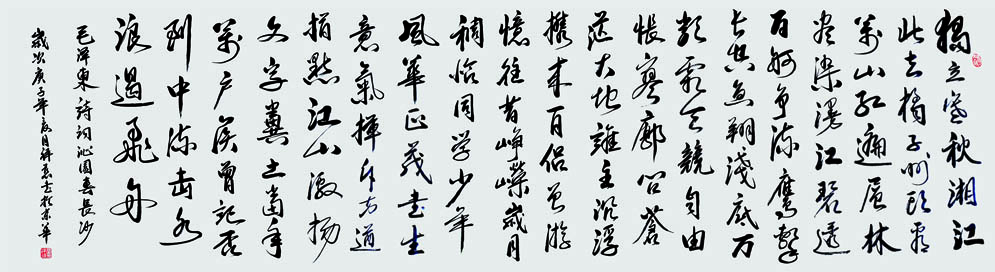 獨立寒秋湘江
北去橘子洲頭看
萬山紅遍層林
盡染漫江碧透
百舸爭流鷹擊
長空魚翔淺底万
類霜天競自由
悵寥廓問蒼
茫大地誰主沉浮
攜來百侶曾游
憶往昔崢嶸歲月
稠恰同學少年
風華正茂書生
意氣揮斥方遒
指點江山激揚
文字糞土當年
萬戶侯曾記否
到中流击水
浪遏飛舟
毛澤東詩詞沁園春長沙
歲次庚子年夏月於京華